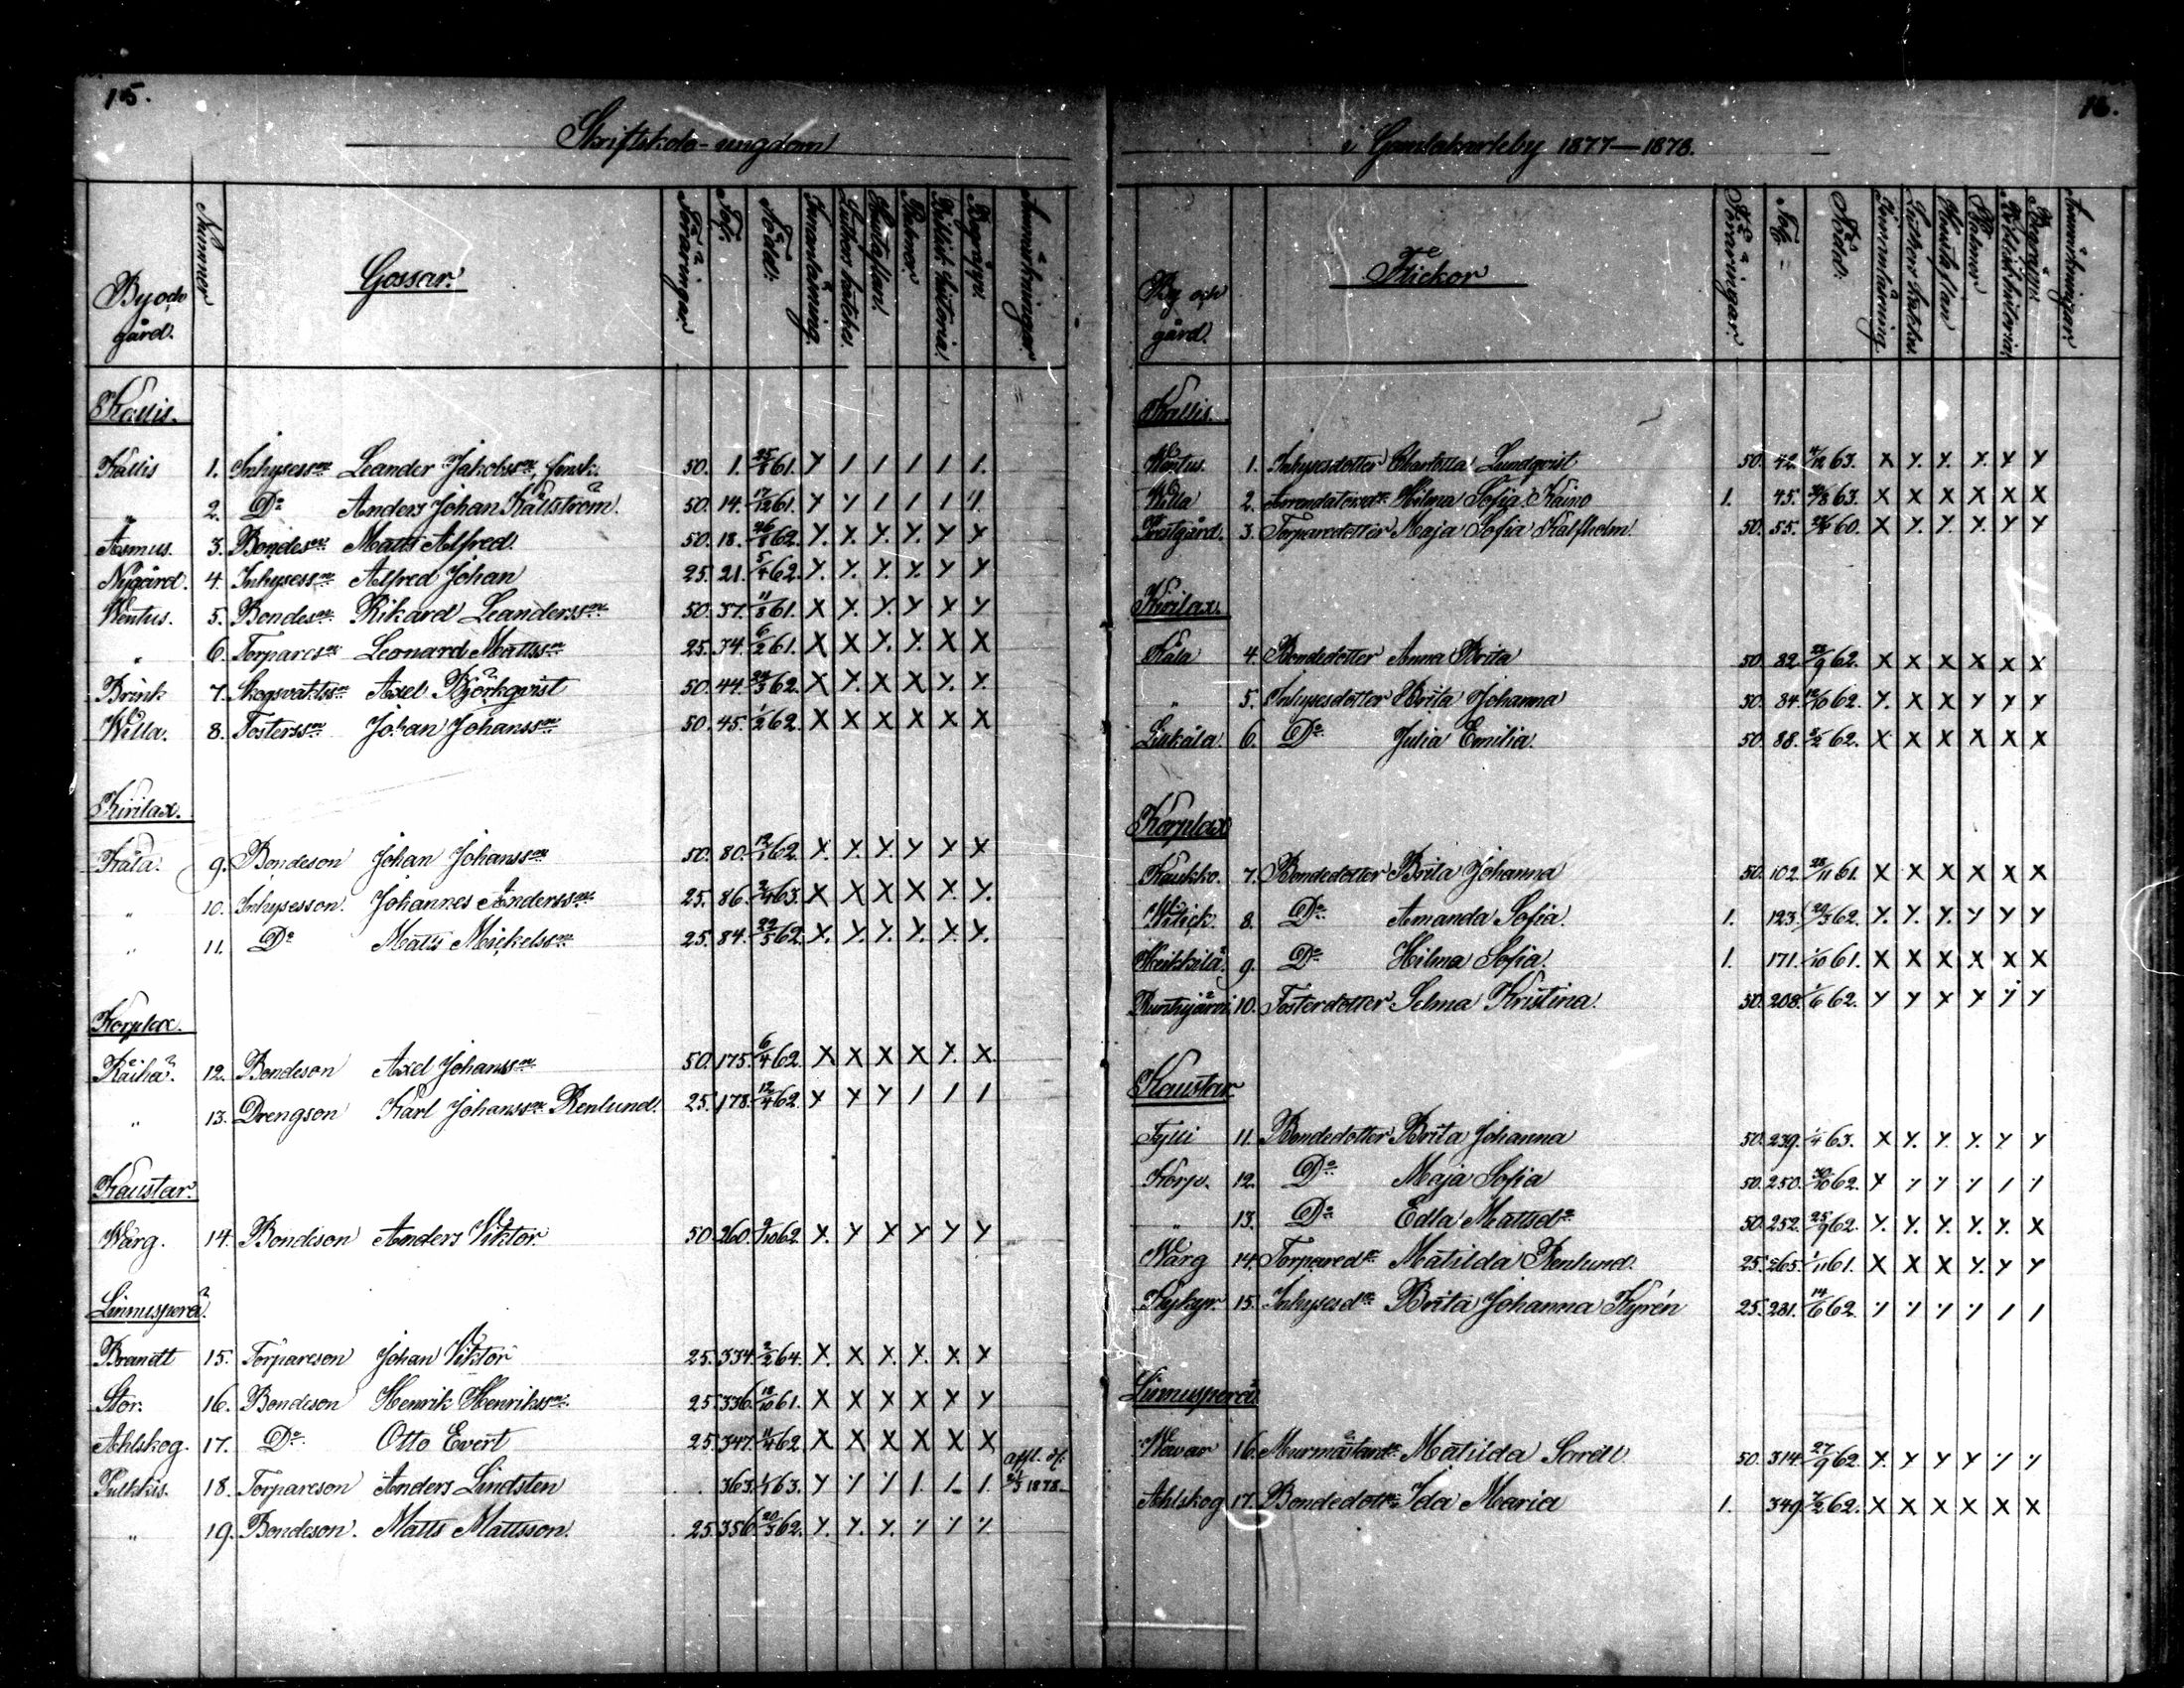 15.
Skriftskole-ungdom
By och gård. Nummer Gossar. Föräringar. Fol: Född: Innanläsning. Luthers katches. Hustaflan. Psalmer. Biblisk historia. Begrepp. Anmärkningar.
Kallis.
Kallis 1. Inhysesson Leander Jakobsson, finsk. 50. 1. 25/8 61. Y / / / / /.
" 2. Do Anders Johan Källström. 50. 14. 17/12 61. Y Y / / / Y.
Asmus. 3. Bondeson Matts Alfred. 50. 18. 26/8 62. Y. Y. Y. Y. Y Y
Nygård. 4. Inhysesson Alfred Johan 25. 21. 5/4 62. Y. Y. Y. Y. Y Y
Wentus. 5. Bondeson Rikard Leandersson 50. 37. 11/8 61. X Y. Y. Y X Y
" 6. Torpareson Leonard Mattsson 25. 34. 6/2 61. X X Y. Y. X X
Brink 7. Skogsvaktson Axel Björkqvist 50. 44. 24/3 62. X Y. X X Y. Y.
Willa. 8. Fostersson Johan Johansson 50. 45. 1/2 62. X X X X X X
Kirilax.
Kåla. 9. Bondeson Johan Johansson 50. 80. 12/1 62. Y. Y. Y. Y Y X
" 10. Inhysesson. Johannes Andersson 25. 86. 2/4 63. X X X X Y. Y.
" 11. Do Matts Mickelsson 25. 84. 22/5 62. X. Y. Y. Y. Y. Y.
Korplax.
Räihä. 12. Bondeson Axel Johansson 50. 175. 6/4 62. X X X X Y. X.
" 13. Drengson Karl Johansson Renlund. 25. 178. 12/4 62. Y Y Y / / /
Kaustar.
Warg. 14. Bondeson Anders Viktor. 50. 260. 9/10 62. X. Y X Y Y Y
Linnusperä.
Brandt 15. Torpareson Johan Viktor 25. 334. 2/2 64. X. X X. Y. X. Y
Stor. 16. Bondeson Henrik Henriksson. 25. 336. 18/10 61. X X X X X Y
Ahlskog. 17. Do. Otto Evert 25. 347. 11/4 62 X X X X X X
Pulkkis. 18. Torpareson Anders Lindsten 363. 1/1 63. Y Y Y / / /. 1878.
" 19. Bondeson. Matts Mattsson. 25. 356. 20/3 62. Y. Y. Y. Y Y Y
16.
i Gamlakarleby 1877—1878.
By och gård. Flickor Föräringar. Fol: Född: Innanläsning Luthers kateches. Hustaflan Psalmer Biblisk historia. Begrepp. Anmärkningar.
Kallis.
Wentus. 1. Inhysesdotter Charlotta Lundqvist 50. 42. 4/12 63. X Y. Y. Y. Y Y
Willa 2. Arrendatorsdr Hilma Sofia Kaino 1. 45. 63. X X X X X X
Prestgård. 3. Torparedotter Maja Sofia Kalfholm. 50. 55. 60. X Y. Y. Y. Y. Y
Kirilax.
Kåla 4. Bondedotter Anna Brita 50. 82. 23/9 62. X X X X X X
" 5. Inhysesdotter Brita Johanna 50. 84. 12/10 62. Y. X X Y Y Y
Liukala. 6. Do. Julia Emilia. 50. 88. 2/2 62. X X X X X X
Korplax
Kaukko. 7. Bondedotter Brita Johanna 50. 102. 28/11 61. X X X X X X
Witick. 8. Do. Amanda Sofia. 1. 123. 20/3 62. Y. Y. Y. Y Y Y
Heikkilä. 9. Do. Hilma Sofia. 1. 171. 1/10 61. X X X X X X
10. Fosterdotter Selma Kristina. 50. 208. 1/6 62. Y Y X Y Y Y
Kaustar.
11. Bondedotter Brita Johanna 50. 239. 1/4 63. X Y. Y. Y. Y Y
Korp. 12. Do. Maja Sofia 50. 250. 30/10 62. Y Y Y Y / Y
" 13. Do. Edla Mattsdr 50. 252. 25/9 62. Y. Y. Y. Y. Y. X
Warg 14. Torparedr Matilda Renlund. 25. 265. 1/11 61. X X X Y. Y Y
15. Inhysesdr Brita Johanna Kyrén 25. 281. 14/6 62. Y Y Y Y / /
Linnusperä
16. Murmästaredr Matilda Sorell 50. 314. 27/9 62. Y. Y Y Y Y Y
Ahlskog 17. Bondedotter Ida Maria 1. 349. 7/2 62. X X X X X X